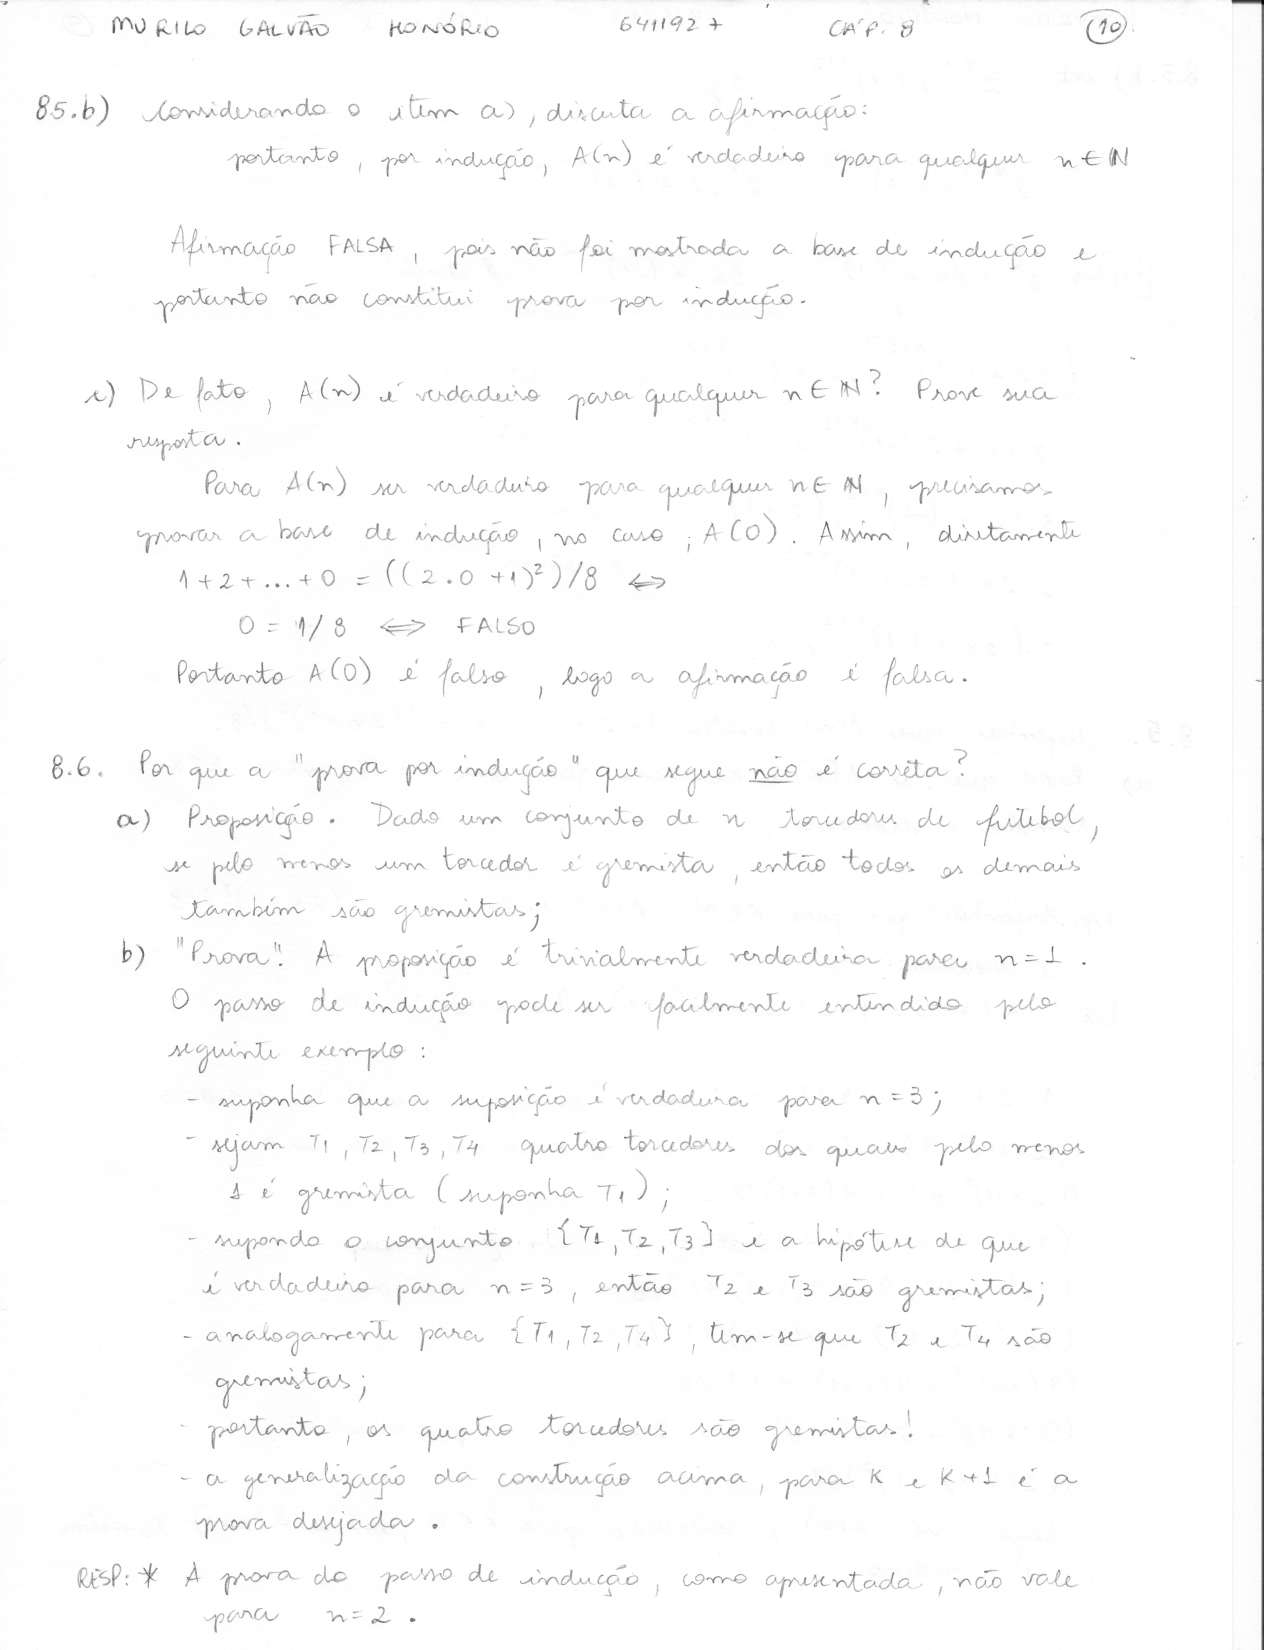 MURILO GALVÃO HONÓRIO 6411927 CAP. 8 10
85.b) Considerando o item a), discuta a afirmação:
portanto, por indução, A(n) é verdadeiro para qualquer n ∈ ℕ
Afirmação FALSA, pois não foi mostrada a base de indução e
portanto não constitui prova por indução.
c) De fato, A(n) é verdadeiro para qualquer n ∈ ℕ? Prove sua
resposta.
Para A(n) ser verdadeiro para qualquer n ∈ ℕ, precisamos
provar a base de indução, no caso, A(0). Assim, diretamente
1+2+...+0 = ((2.0 +1)²)/8 ⇔
0 = 1/8 ⇔ FALSO
Portanto A(0) é falso, logo a afirmação é falsa.
8.6. Por que a "prova por indução" que segue não é correta?
a) Proposição. Dado um conjunto de n torcedores de futebol,
se pelo menos um torcedor é gremista, então todos os demais
também são gremistas;
b) "Prova". A proposição é trivialmente verdadeira para n=1.
O passo de indução pode ser facilmente entendido pelo
seguinte exemplo:
- suponha que a suposição é verdadeira para n=3;
- sejam T1, T2, T3, T4 quatro torcedores dos quais pelo menos
1 é gremista (suponha T1);
- supondo o conjunto {T1, T2, T3} e a hipótese de que
é verdadeiro para n=3, então T2 e T3 são gremistas;
- analogamente para {T1, T2, T4}, tem-se que T2 e T4 são
gremistas;
- portanto, os quatro torcedores são gremistas!
- a generalização da construção acima, para K e K+1 é a
prova desejada.
RESP: * A prova do passo de indução, como apresentada, não vale
para n=2.